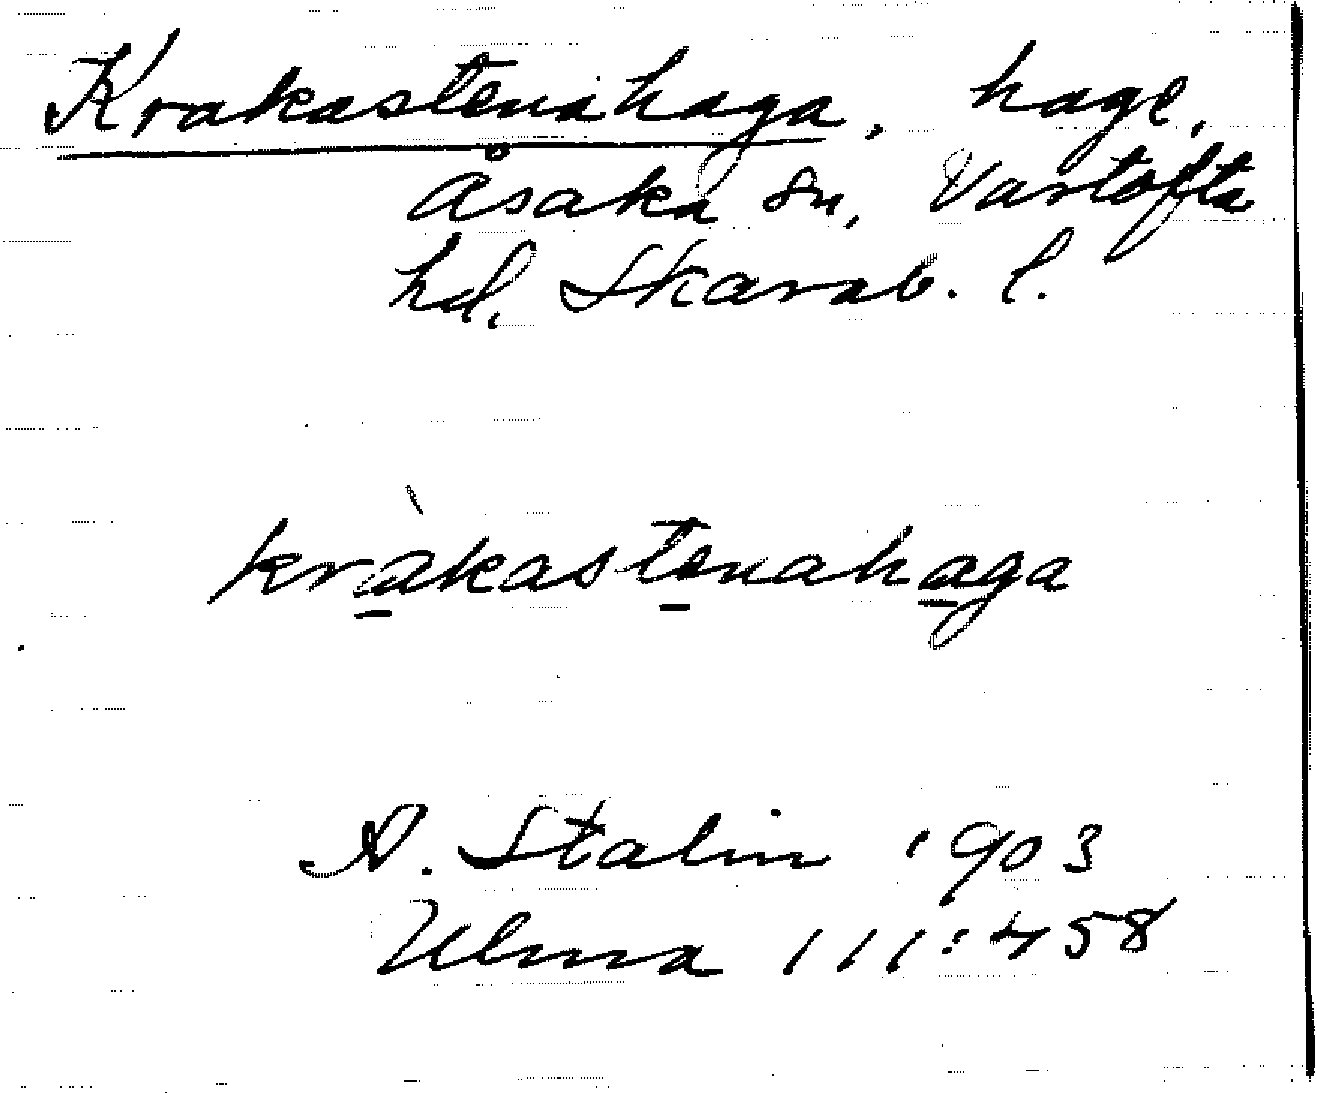 Krakastenahaga, hage,
Åsaka sn, Vartofta
hd, Skarab. l.
kràkastenahaga
A. Stalin 1903
Ulma 111:458